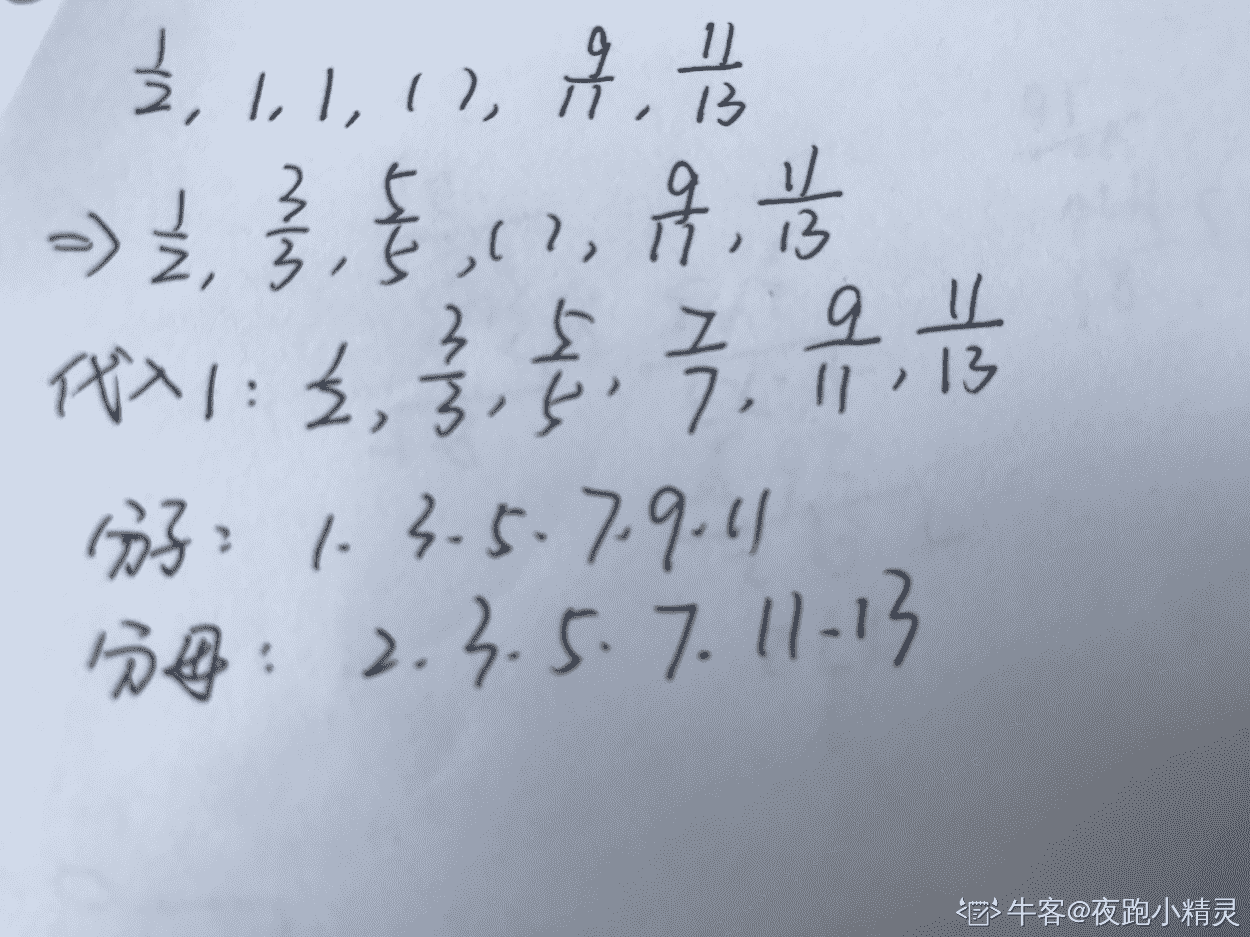 1/2, 1, 1, ( ), 9/11, 11/13
⇒ 1/2, 3/3, 5/5, ( ), 9/11, 11/13
代入1: 1/2, 3/3, 5/5, 7/7, 9/11, 11/13
分子: 1. 3. 5. 7. 9. 11
分母: 2. 3. 5. 7. 11. 13
牛客@夜跑小精灵